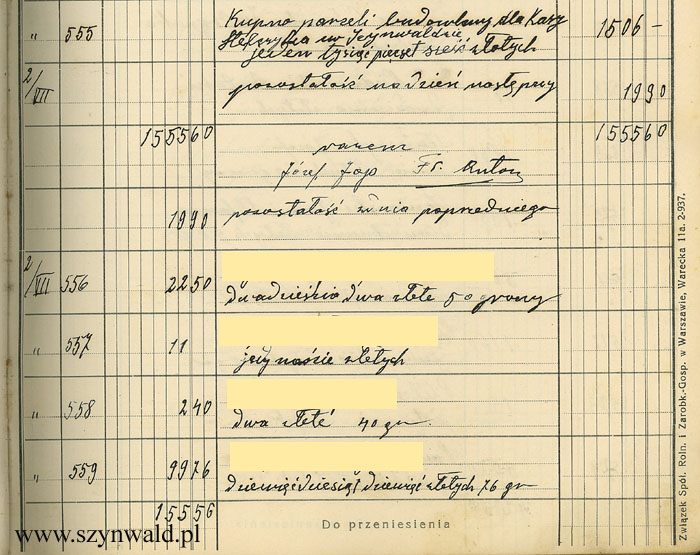 " 555 Kupno parceli budowlanej dla Kasy 1506 -
w
jeden tysiąc pięćset sześć złotych
2/VII pozostałość na dzień następny 1990
155560 razem 155560
Józef Fr.
1990 pozostałość z dnia poprzedniego
2/VII 556 2250
dwadzieścia dwa złote 50 groszy
" 557 11
złotych
" 558 240
dwa złote 40 gr.
" 559 9976
dziewięćdziesiąt dziewięć złotych 76 gr
15556 Do przeniesienia
www.szynwald.pl
Związek Spół. Roln. i Zarobk.-Gosp. w Warszawie, Warecka 11a. 2-937.